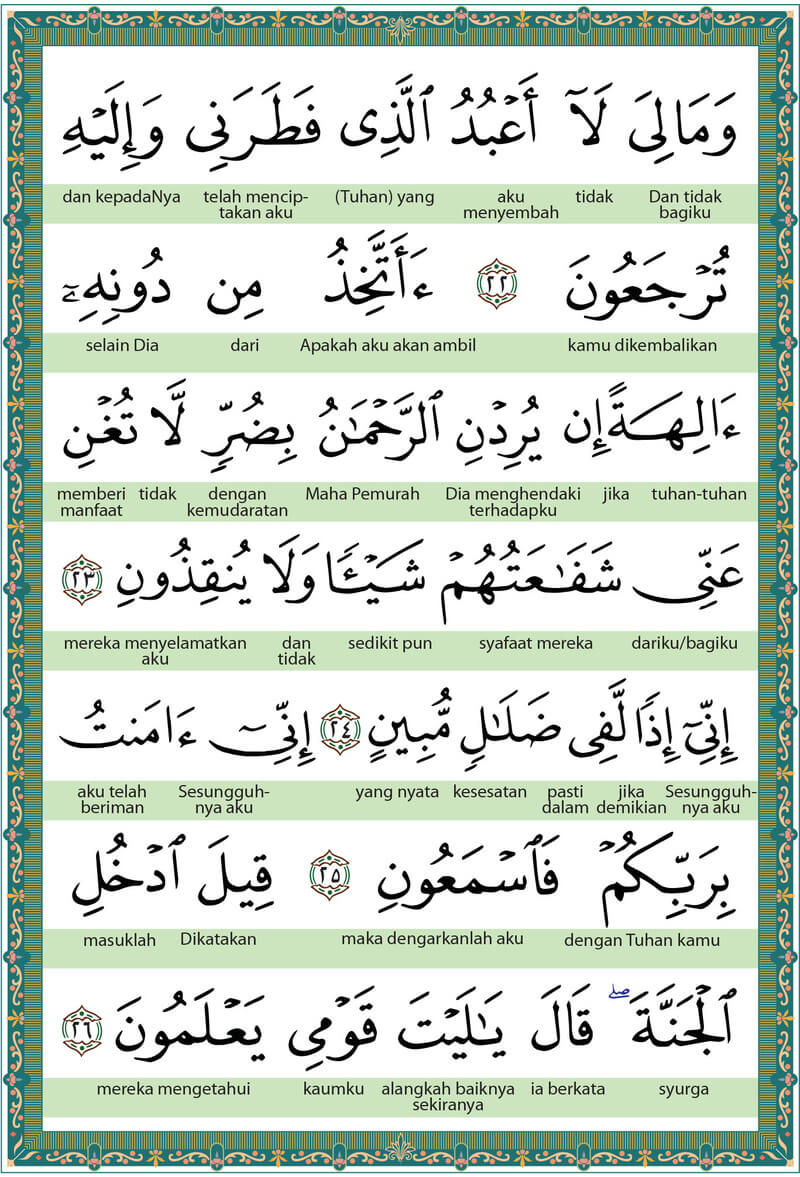 وَمَا لِىَ لَآ أَعۡبُدُ ٱلَّذِى فَطَرَنِى وَإِلَيۡهِ
dan kepadaNya telah mencip- (Tuhan) yang aku tidak Dan tidak
takan aku menyembah bagiku
تُرۡجَعُونَ ٢٢ ءَأَتَّخِذُ مِن دُونِهِۦٓ
selain Dia dari Apakah aku akan ambil kamu dikembalikan
ءَالِهَةً إِن يُرِدۡنِ ٱلرَّحۡمَـٰنُ بِضُرٍّ لَّا تُغۡنِ
memberi tidak dengan Maha Pemurah Dia menghendaki jika tuhan-tuhan
manfaat kemudaratan terhadapku
عَنِّى شَفَـٰعَتُهُمۡ شَيۡـًٔا وَلَا يُنقِذُونِ ٢٣
mereka menyelamatkan dan sedikit pun syafaat mereka dariku/bagiku
aku tidak
إِنِّىٓ إِذًا لَّفِى ضَلَـٰلٍ مُّبِينٍ ٢٤ إِنِّىٓ ءَامَنتُ
aku telah Sesungguh- yang nyata kesesatan pasti jika Sesungguh-
beriman nya aku dalam demikian nya aku
بِرَبِّكُمۡ فَٱسۡمَعُونِ ٢٥ قِيلَ ٱدۡخُلِ
masuklah Dikatakan maka dengarkanlah aku dengan Tuhan kamu
ٱلۡجَنَّةَ ۖ قَالَ يَـٰلَيۡتَ قَوۡمِى يَعۡلَمُونَ ٢٦
mereka mengetahui kaumku alangkah baiknya ia berkata syurga
sekiranya